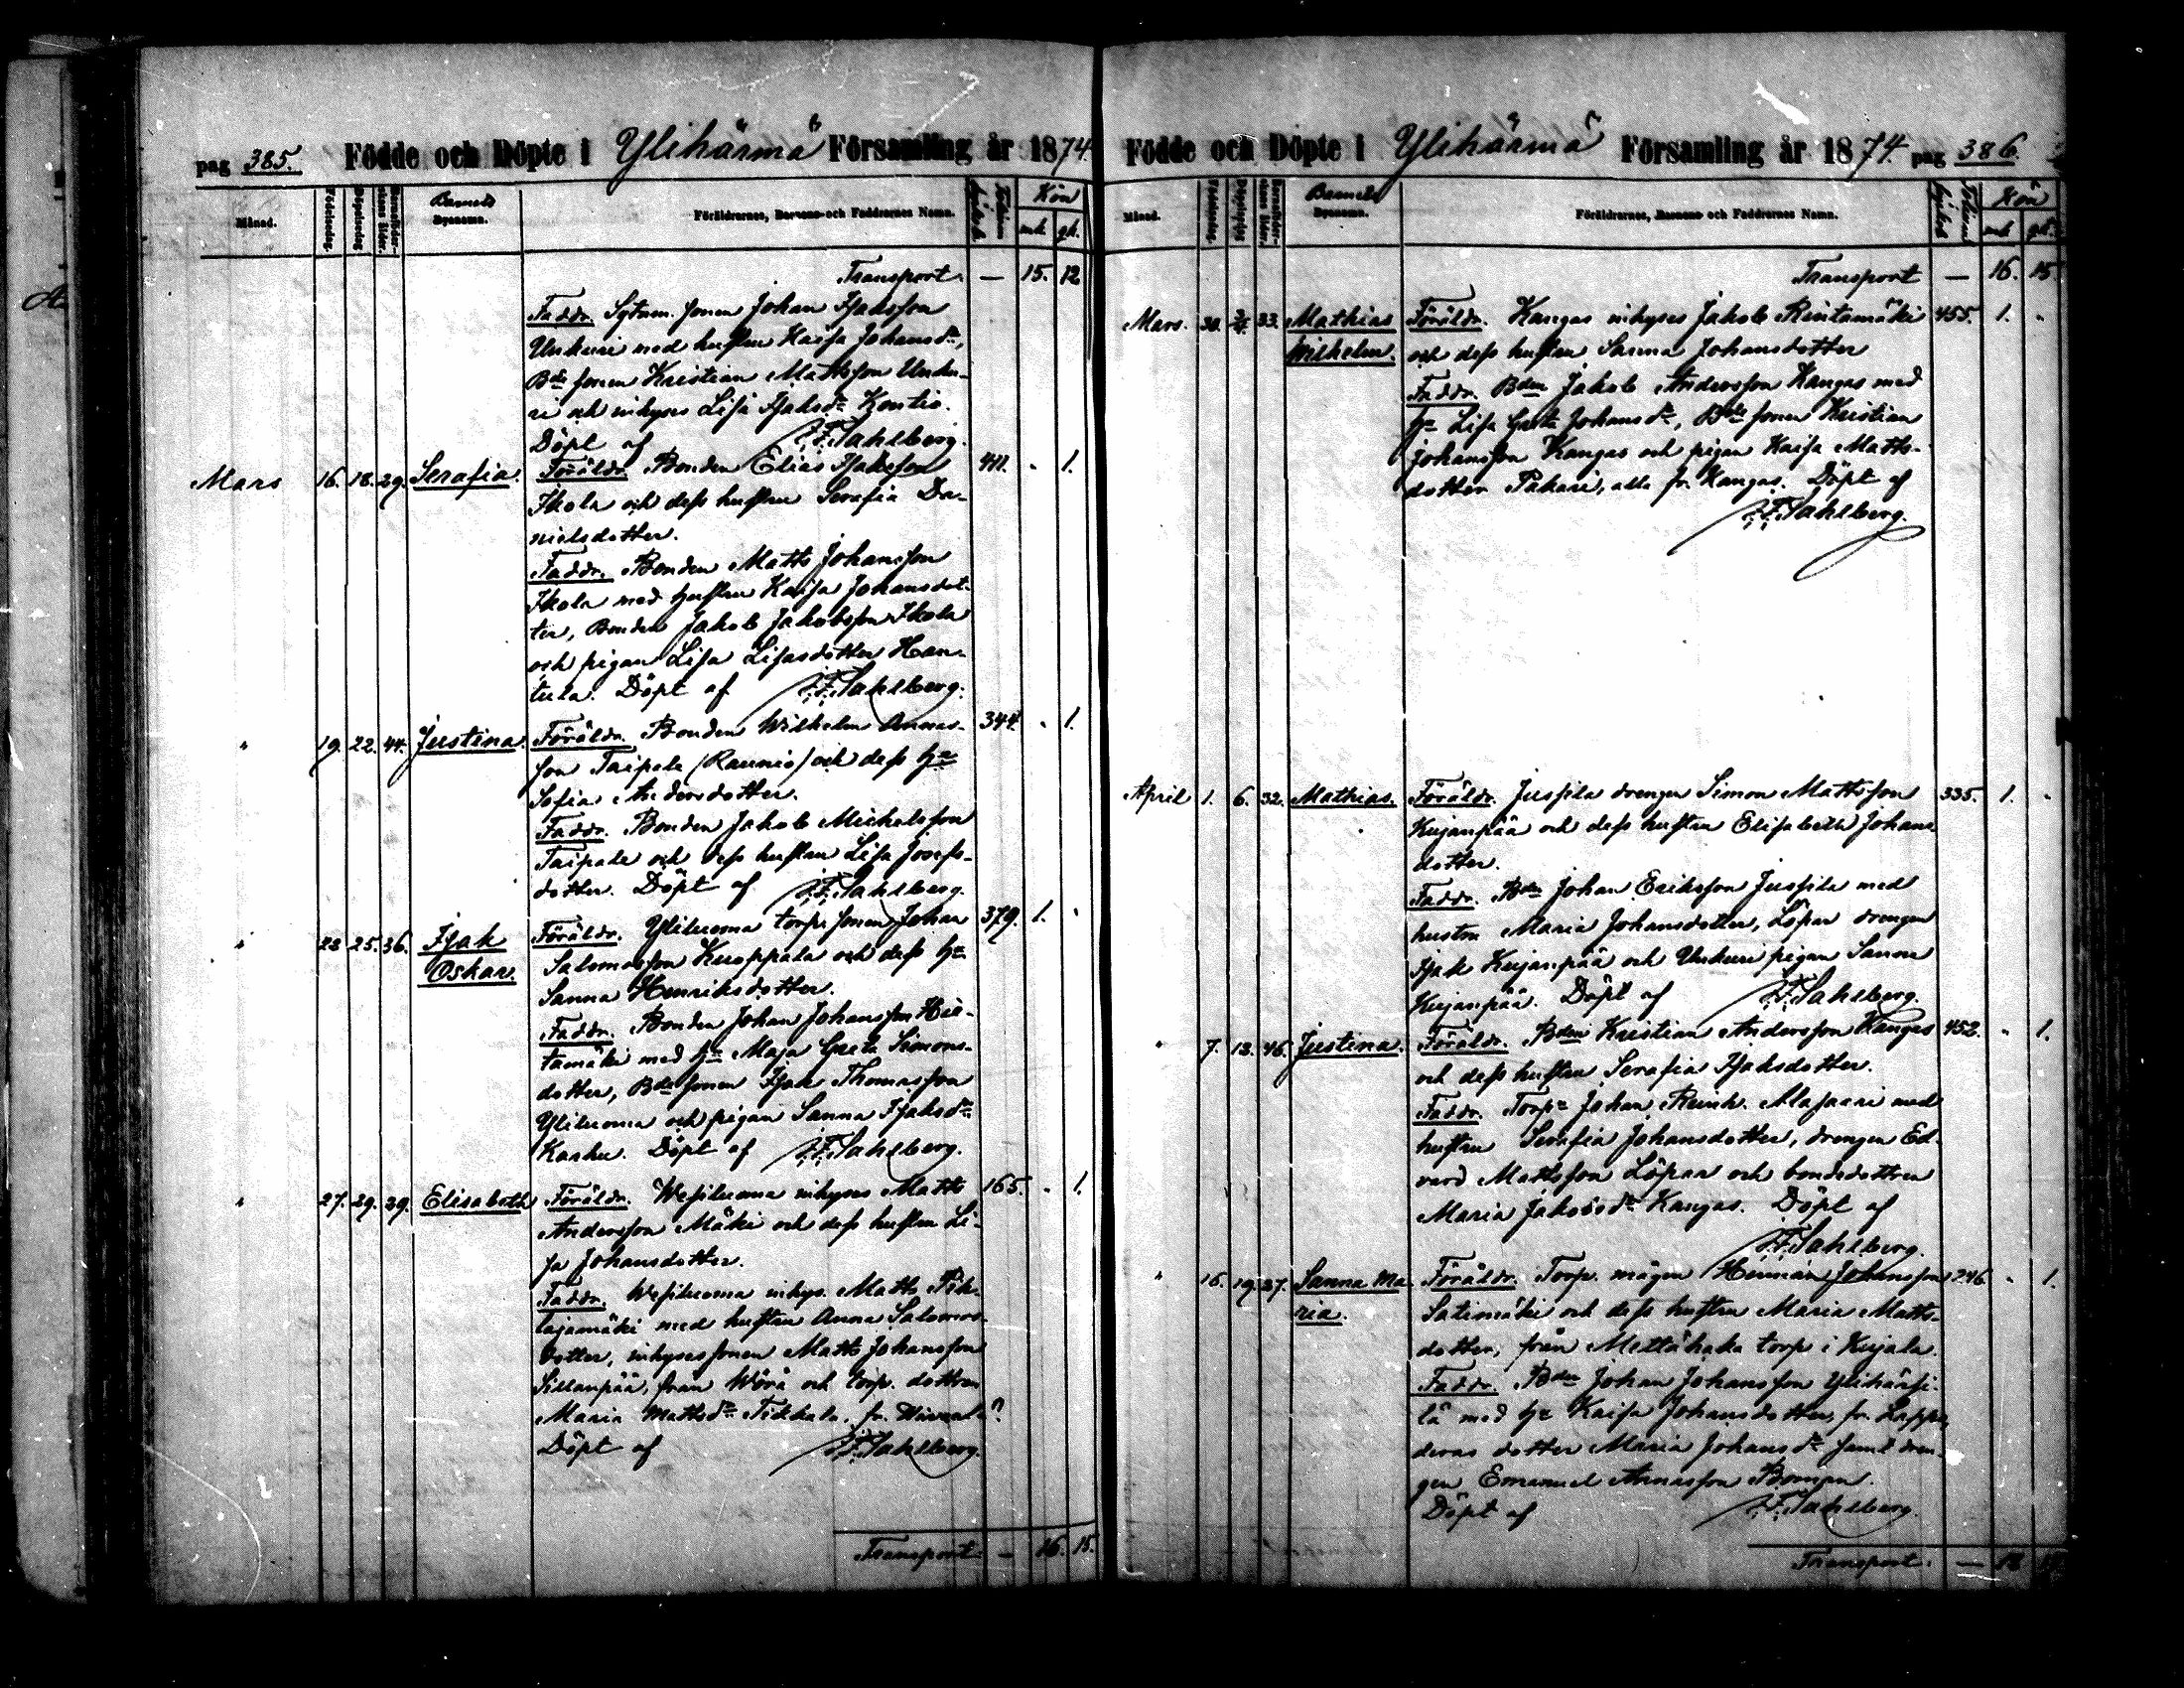 pag 385. Födde och Döpte i Ylihärmä Församling år 1874.
Månad. Födelsedag. Döpelsedag Barnaföder-skans ålder. Barnets Byanamn. Föräldrarnes, Barnens och Faddrarnes Namn. Kön
mk. qk.
Transport. — 15. 12
Faddr. Sytnm. sonen Johan Isaksson
Unkuri med hustru Kaisa Johansdr,
Bde sonen Kristian Mattsson Unku-
ri och inhyses Lisa Isaksdr Kontio.
Döpt af J.F. Sahlberg.
Mars 16. 18. 29. Serafia. Föräldr. Bonden Elias Isaksson 411. " 1.
Ikola och dess hustru Serafia Da-
nielsdotter.
Faddr. Bonden Matts Johansson
Ikola med hustru Kaisa Johansdot-
ter, Bonden Jakob Jakobsson Ikola
och pigan Lisa Lisasdotter Han-
tula. Döpt af J.F. Sahlberg.
" 19. 22. 44. Justina. Föräldr. Bonden Wilhelm Annas- 344. " 1.
son Taipale (Raunio) och dess hu
Sofia Andersdotter.
Faddr. Bonden Jakob Michelsson
Taipale och dess hustru Lisa Josefs-
dotter. Döpt af J.F. Sahlberg.
" 23 25. 36. Isak Föräldr. Yliluoma torp. sonen Johan 379. 1. "
Oskar. Salomosson Kuoppala och dess hu
Sanna Henriksdotter.
Faddr. Bonden Johan Johansson Hie-
tamäki med hu Maja Greta Simons-
dotter, Bde sonen Isak Thomasson
Yliluoma och pigan Sanna Isaksdr
Karhu. Döpt af J.F. Sahlberg.
" 27. 29. 39. Elisabeth Föräldr. Wesiluoma inhyses Matts 165. " 1.
Andersson Mäki och dess hustru Li-
sa Johansdotter.
Faddr. Wesiluoma inhys. Matts Pih-
lajamäki med hustru Anna Salomos-
dotter, inhysessonen Matts Johansson
Sillanpää, från Wörå och torp. dottren
Maria Mattsdr Tikkala, fr.
Döpt af J.F. Sahlberg.
Transport — 16. 15.
Födde och Döpte i Ylihärmä Församling år 1874. pag 386.
Månad. Födelsedag. Döpelsedag Barnaföder-skans ålder. Barnets Byanamn. Föräldrarnes, Barnens och Faddrarnes Namn. Kön
mk qk.
Transport — 16. 15
Mars. 30. 33. Mathias Föräldr. Kangas inhyses Jakob Rintamäki 455. 1. "
Wilhelm. och dess hustru Sanna Johansdotter
Faddr. Bden Jakob Andersson Kangas med
hu Lisa Greta Johansdr, Bde sonen Kristian
Johansson Kangas och pigan Kaisa Matts-
dotter Pakari, alla fr. Kangas. Döpt af
J.F. Sahlberg.
April 1. 6. 32. Mathias. Föräldr. Jussila drengen Simon Mattsson 335. 1. "
Kujanpää och dess hustru Elisabeth Johans
dotter.
Faddr. Bden Johan Eriksson Jussila med
hustru Maria Johansdotter, Löpar drengen
Isak Kujanpää och Unkuri pigan Sanna
Kujanpää. Döpt af J.F. Sahlberg.
" 7. 13. 46. Justina. Föräldr. Bden Kristian Andersson Kangas 452. " 1.
och dess hustru Serafia Isaksdotter.
Faddr. Torpr Johan Reink. Alasaari med
hustru Serafia Johansdotter, drengen Ed-
vard Mattsson Löpar och bondedottren
Maria Jakobsdr Kangas. Döpt af
J.F. Sahlberg.
" 16. 19. 27. Sanna Ma Föräldr. Torp. mågen Herman Johansson 1246. " 1.
ria. Satimäki och dess hustru Maria Matts-
dotter, från Mettähaka torp i Kujala.
Faddr. Bden Johan Johansson Ylihärsi-
lä med hu Kaisa Johansdotter, fr. Lappo,
deras dotter Maria Johansdr samt dren-
gen Emanuel Annasson Bompa.
Döpt af J.F. Sahlberg.
Transport. — 18